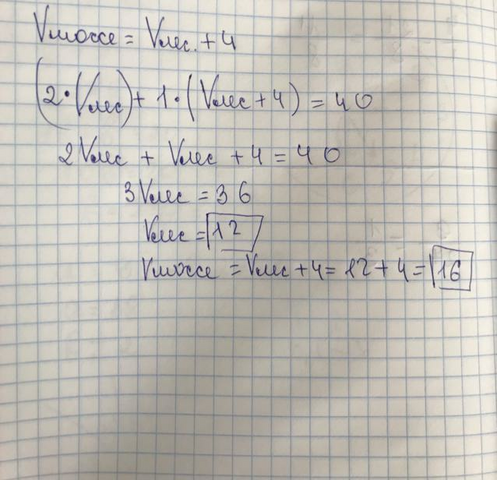 Vшоссе = Vлес. + 4
(2 · Vлес) + 1 · (Vлес + 4) = 40
2Vлес + Vлес + 4 = 40
3Vлес = 36
Vлес = 12
Vшоссе = Vлес + 4 = 12 + 4 = 16